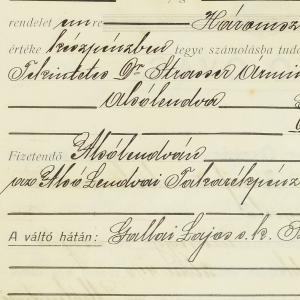 rendelet en re Háromsz
értéke készpénzben tegye számolásba tud
Tekintetes Dr Strasser Ármin
Alsólendva
Fizetendő Alsólendván
Alsó Lendvai Takarékpénz
A váltó hátán: Gallai Lajos s.k.